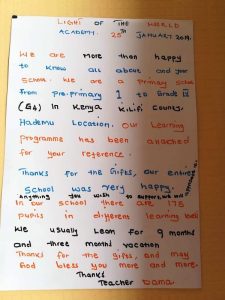 LIGHT OF THE WORLD
ACADEMY. 25th JANUARY 2019.
We are more than happy
to know all about and your
School. We are a Primary School
from Pre-primary 1 to Grade IV
(G4) in Kenya Kilifi County.
Hademu Location. Our Learning
programme has been attached
for your reference.
Thanks for the Gifts, our entire
School was very happy.
Anything you wish to support,
In our school there are 178
pupils in different learning
We usually learn for 9 months
and three months vacation
Thanks for the gifts, and may
God bless you more and more.
Thanks
Teacher Dama